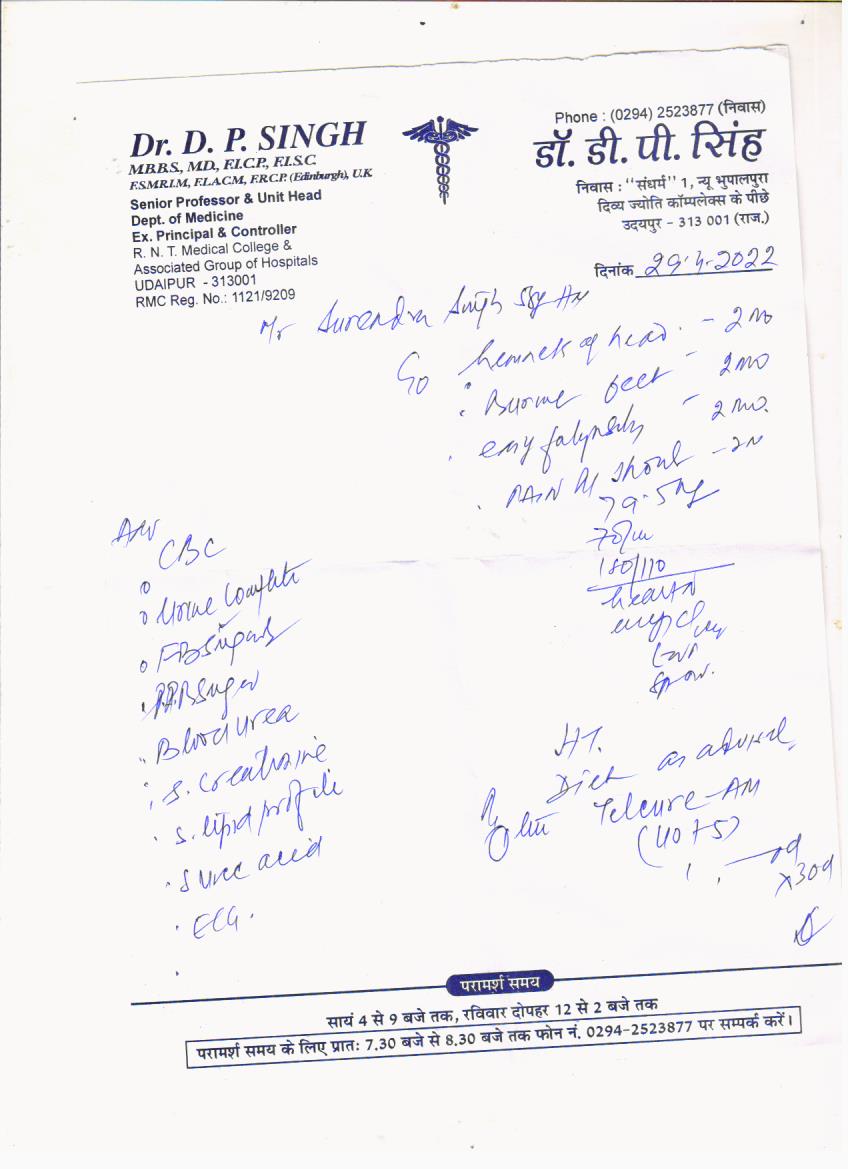 Dr. D. P. SINGH
M.B.B.S., M.D., F.I.C.P., F.I.S.C.
F.S.M.R.I.M., F.I.A.C.M., F.R.C.P. (Edinburgh), U.K
Senior Professor & Unit Head
Dept. of Medicine
Ex. Principal & Controller
R. N. T. Medical College &
Associated Group of Hospitals
UDAIPUR - 313001
RMC Reg. No.: 1121/9209
Phone : (0294) 2523877 (निवास)
डॉ. डी. पी. सिंह
निवास : "संधर्म" 1, न्यू भुपालपुरा
दिव्य ज्योति कॉम्पलेक्स के पीछे
उदयपुर - 313 001 (राज.)
दिनांक 29.4.2022
Mr Surendra Singh
of head. - 2 mo
feet - 2 mo
easy - 2 mo.
PAIN
79.5 kg
70/m
180/110
CBC
Urine Complete
FBSugar
PPBSugar
Blood Urea
S. Creatinine
S. lipid profile
S uric acid
ECG.
HT.
Diet as advised
Telcure-AM
(40+5)
x30d
परामर्श समय
सायं 4 से 9 बजे तक, रविवार दोपहर 12 से 2 बजे तक
परामर्श समय के लिए प्रातः 7.30 बजे से 8.30 बजे तक फोन नं. 0294-2523877 पर सम्पर्क करें।